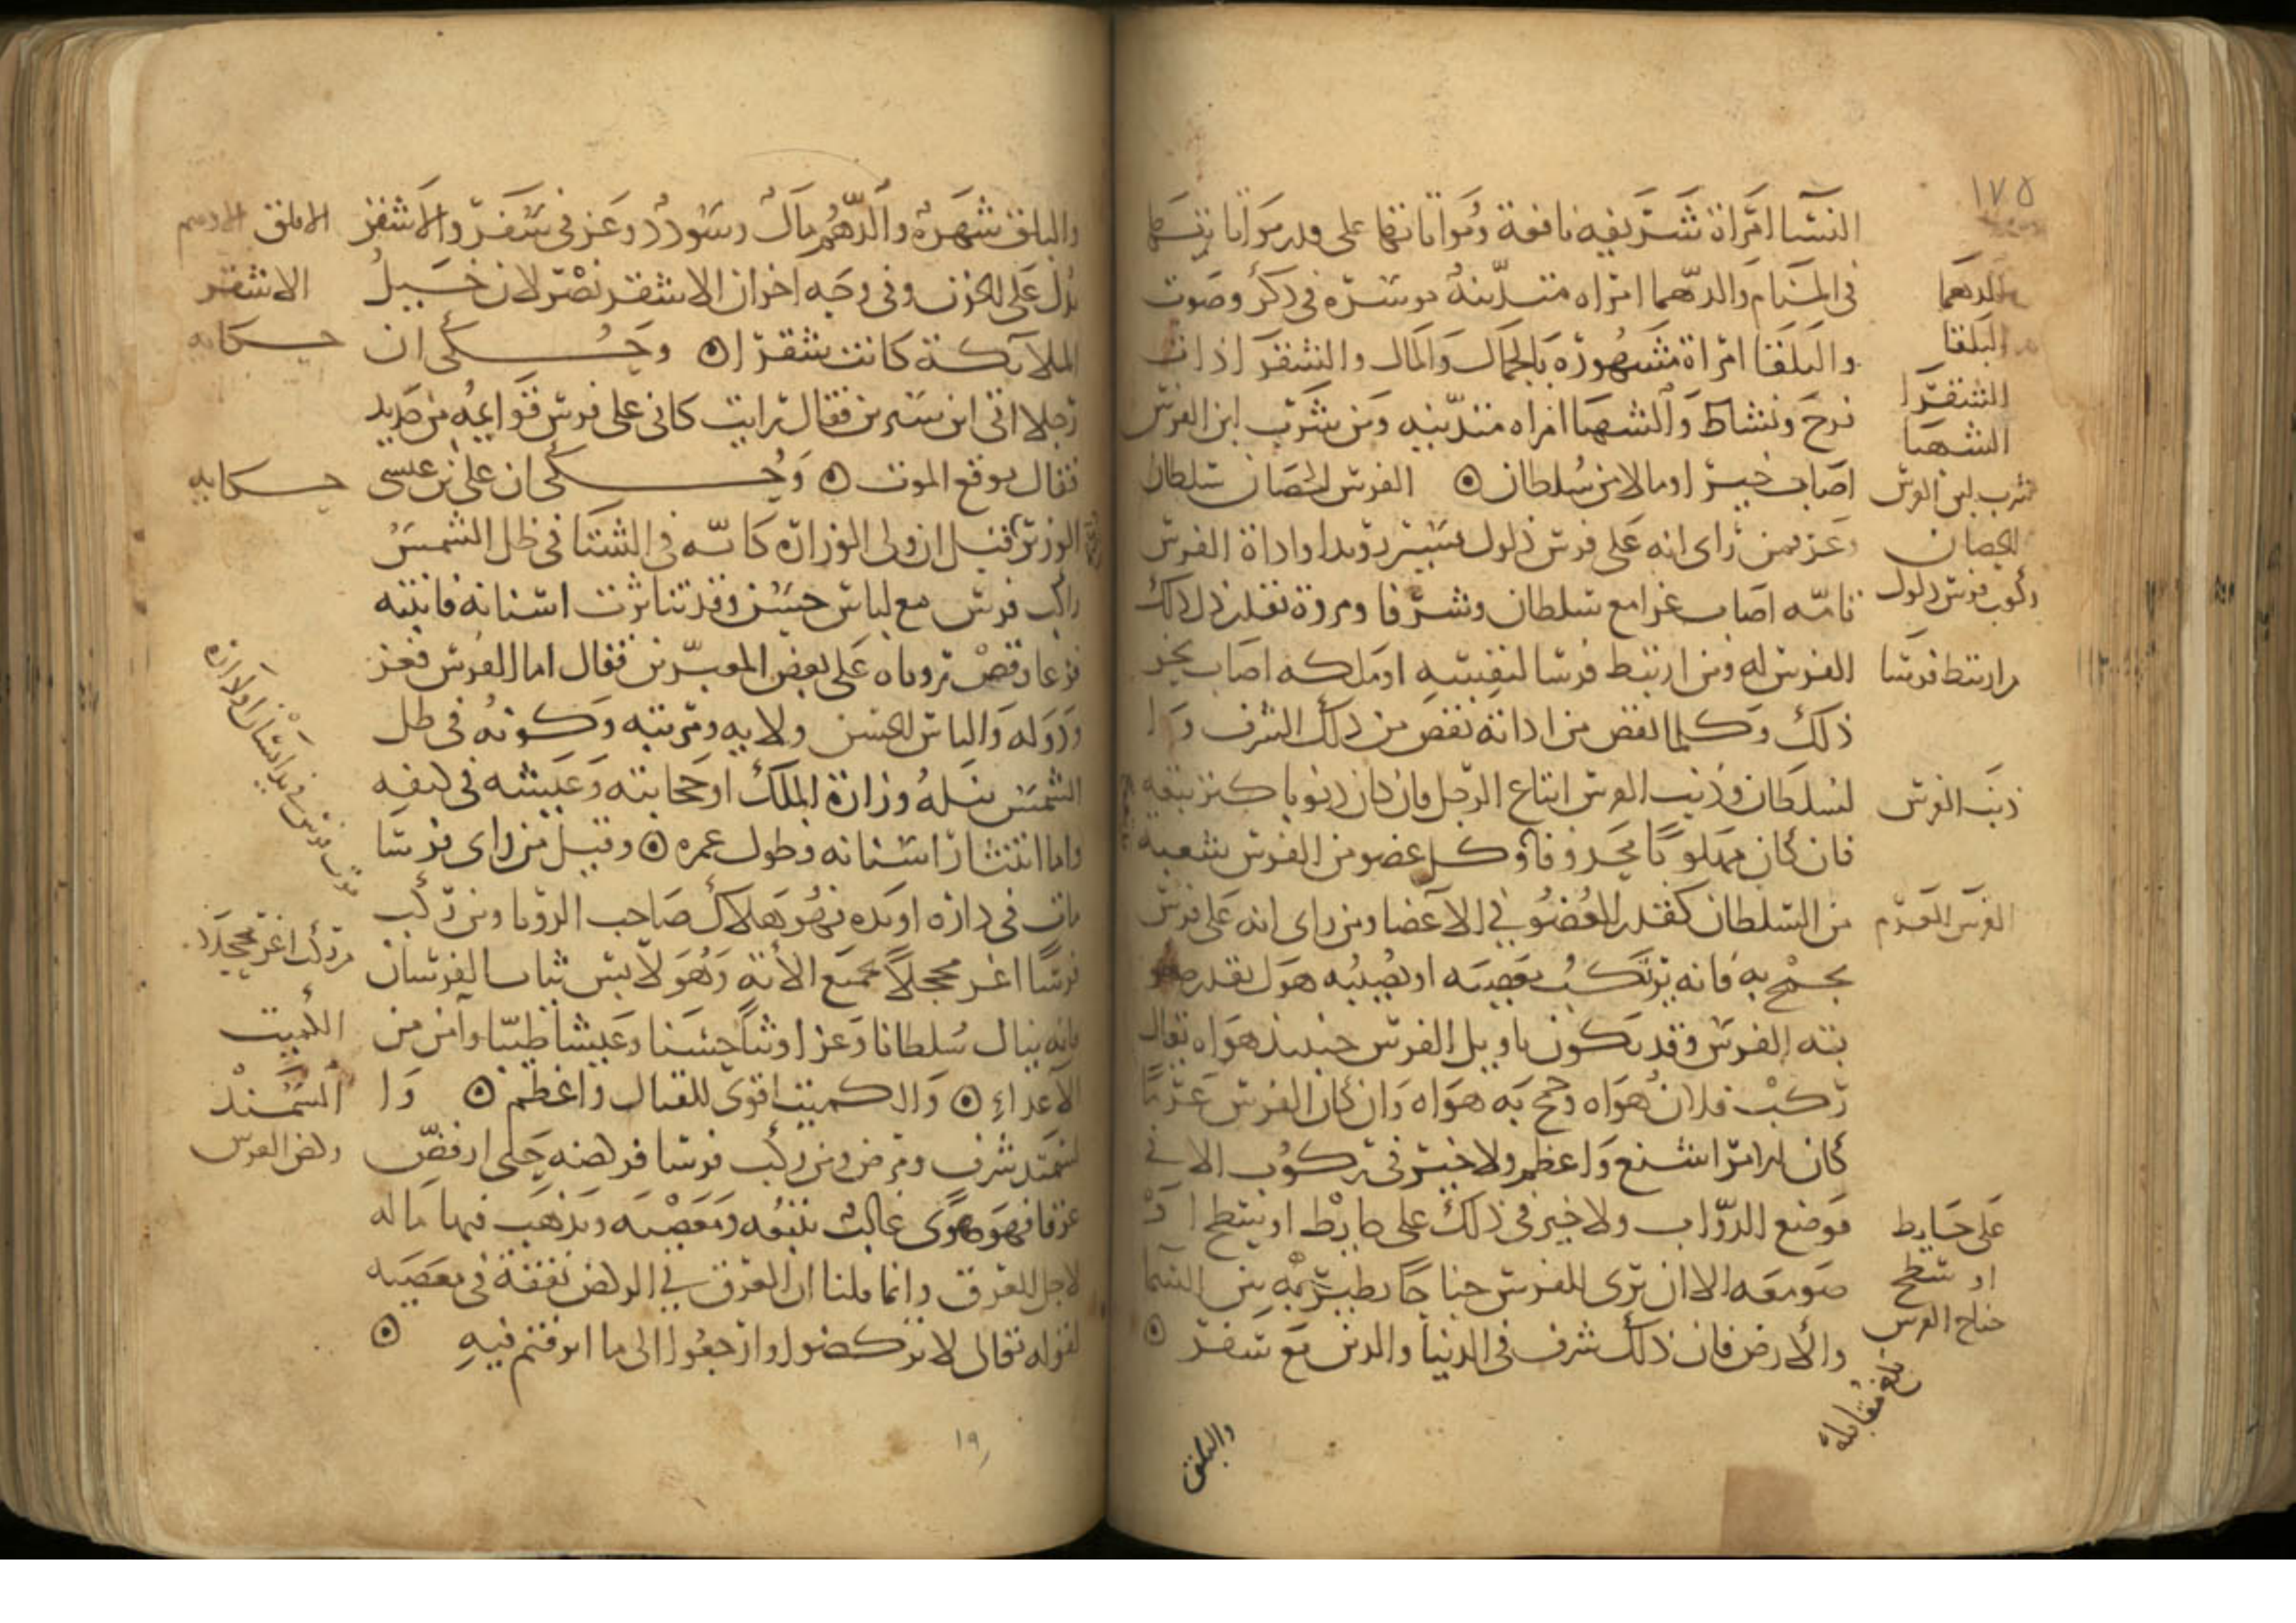 ١٧٥
النسا امراة شريفه نافعة ومواتاتها على قدر مواتا
في المنام والدهما امراه متدينة موسرة في ذكر وصوت
والبلقا امراة مشهورة بالجمال والمال والشقرا ذات
فرح ونشاط والشهبا امراه متدينه ومن شرب لبن الفرس
اصاب خيرا ومالا من سلطان ۞ الفرس الحصان سلطان
وعز فمن راى انه على فرس ذلول يسير رويدا واداة الفرس
تامه اصاب عزا مع سلطان وشرفا ومروة بقدر ذل ذلك
الفرس له ومن ارتبط فرسا لنفسه او ملكه اصاب نحو
ذلك وكلما نقص من اداته نقص من ذلك الشرف و
السلطان وذنب الفرس اتباع الرجل فان كان ذنوبا كثر تبعه
فان كان مهلوبا محذوفا وكل عضو من الفرس شعبه
من السلطان كقدر العضو في الاعضا ومن راى انه على فرس
يجمح به فانه يرتكب معصيه او يصيبه هول بقدر صعو
بته الفرس وقد يكون تاويل الفرس حينيذ هواه يقال
ركب فلان هواه وجمح به هواه وان كان الفرس عريا
كان الامر اشنع واعظم ولا خير في ركوب الا في
موضع الدواب ولا خير في ذلك على حايط او سطح او
صومعه الا ان يرى للفرس جناحا يطير به بين السما
والارض فان ذلك شرف في الدنيا والدين مع سفر ۞
الدهما
البلقا
الشقرا
الشهبا
شرب لبن الفرس
الحصان
ركوب فرس ذلول
من ارتبط فرسا
ذنب الفرس
على حايط
او سطح
جناح الفرس
بلغ مقابلة
والبلق
والبلق شهرة والدهم مال وسودد وعز في سفر والاشقر
يدل على الحزن وفي وجه اخر ان الاشقر نصر لان خيل
الملايكة كانت شقرا ۞ وحكي ان
رجلا اتى ابن سيرين فقال رايت كاني على فرس قوايمه من حديد
فقال توقع الموت ۞ وحكي ان علي بن عيسى
الوزير قبل ان ولي الوزارة كانه في الشتا في ظل الشمس
راكب فرس مع لباس حسن وقد تناثرت اسنانه فانتبه
فزعا وقص روياه على بعض المعبرين فقال اما الفرس فعز
ودوله واللباس الحسن ولايه ومرتبه وكونه في ظل
الشمس نيله وزارة الملك او حجابته وعيشه في كنفه
واما انتثار اسنانه فطول عمره ۞ وقيل من راى فرسا
مات في داره او يده فهو هلاك صاحب الرويا ومن ركب
فرسا اغر محجلا بجميع الاته وهو لابس ثياب الفرسان
فانه ينال سلطانا وعزا وثنا حسنا وعيشا طيبا وامن من
الاعداء ۞ والكميت اقوى للقتال واعظم ۞ وا
لسمند شرف ومرض ومن ركب فرسا فركضه حتى ارفض
عرقا فهو هوى غالب يتبعه ومعصيه ويذهب فيها ماله
لاجل العرق وانما قلنا ان العرق في الركض نفقة في معصيه
لقوله تعالى لا تركضوا وارجعوا الى ما اترفتم فيه ۞
الابلق الادهم
الاشقر
حكايه
حكايه
من ركب اغر محجلا
الكميت
السمند
ركض الفرس
١٩